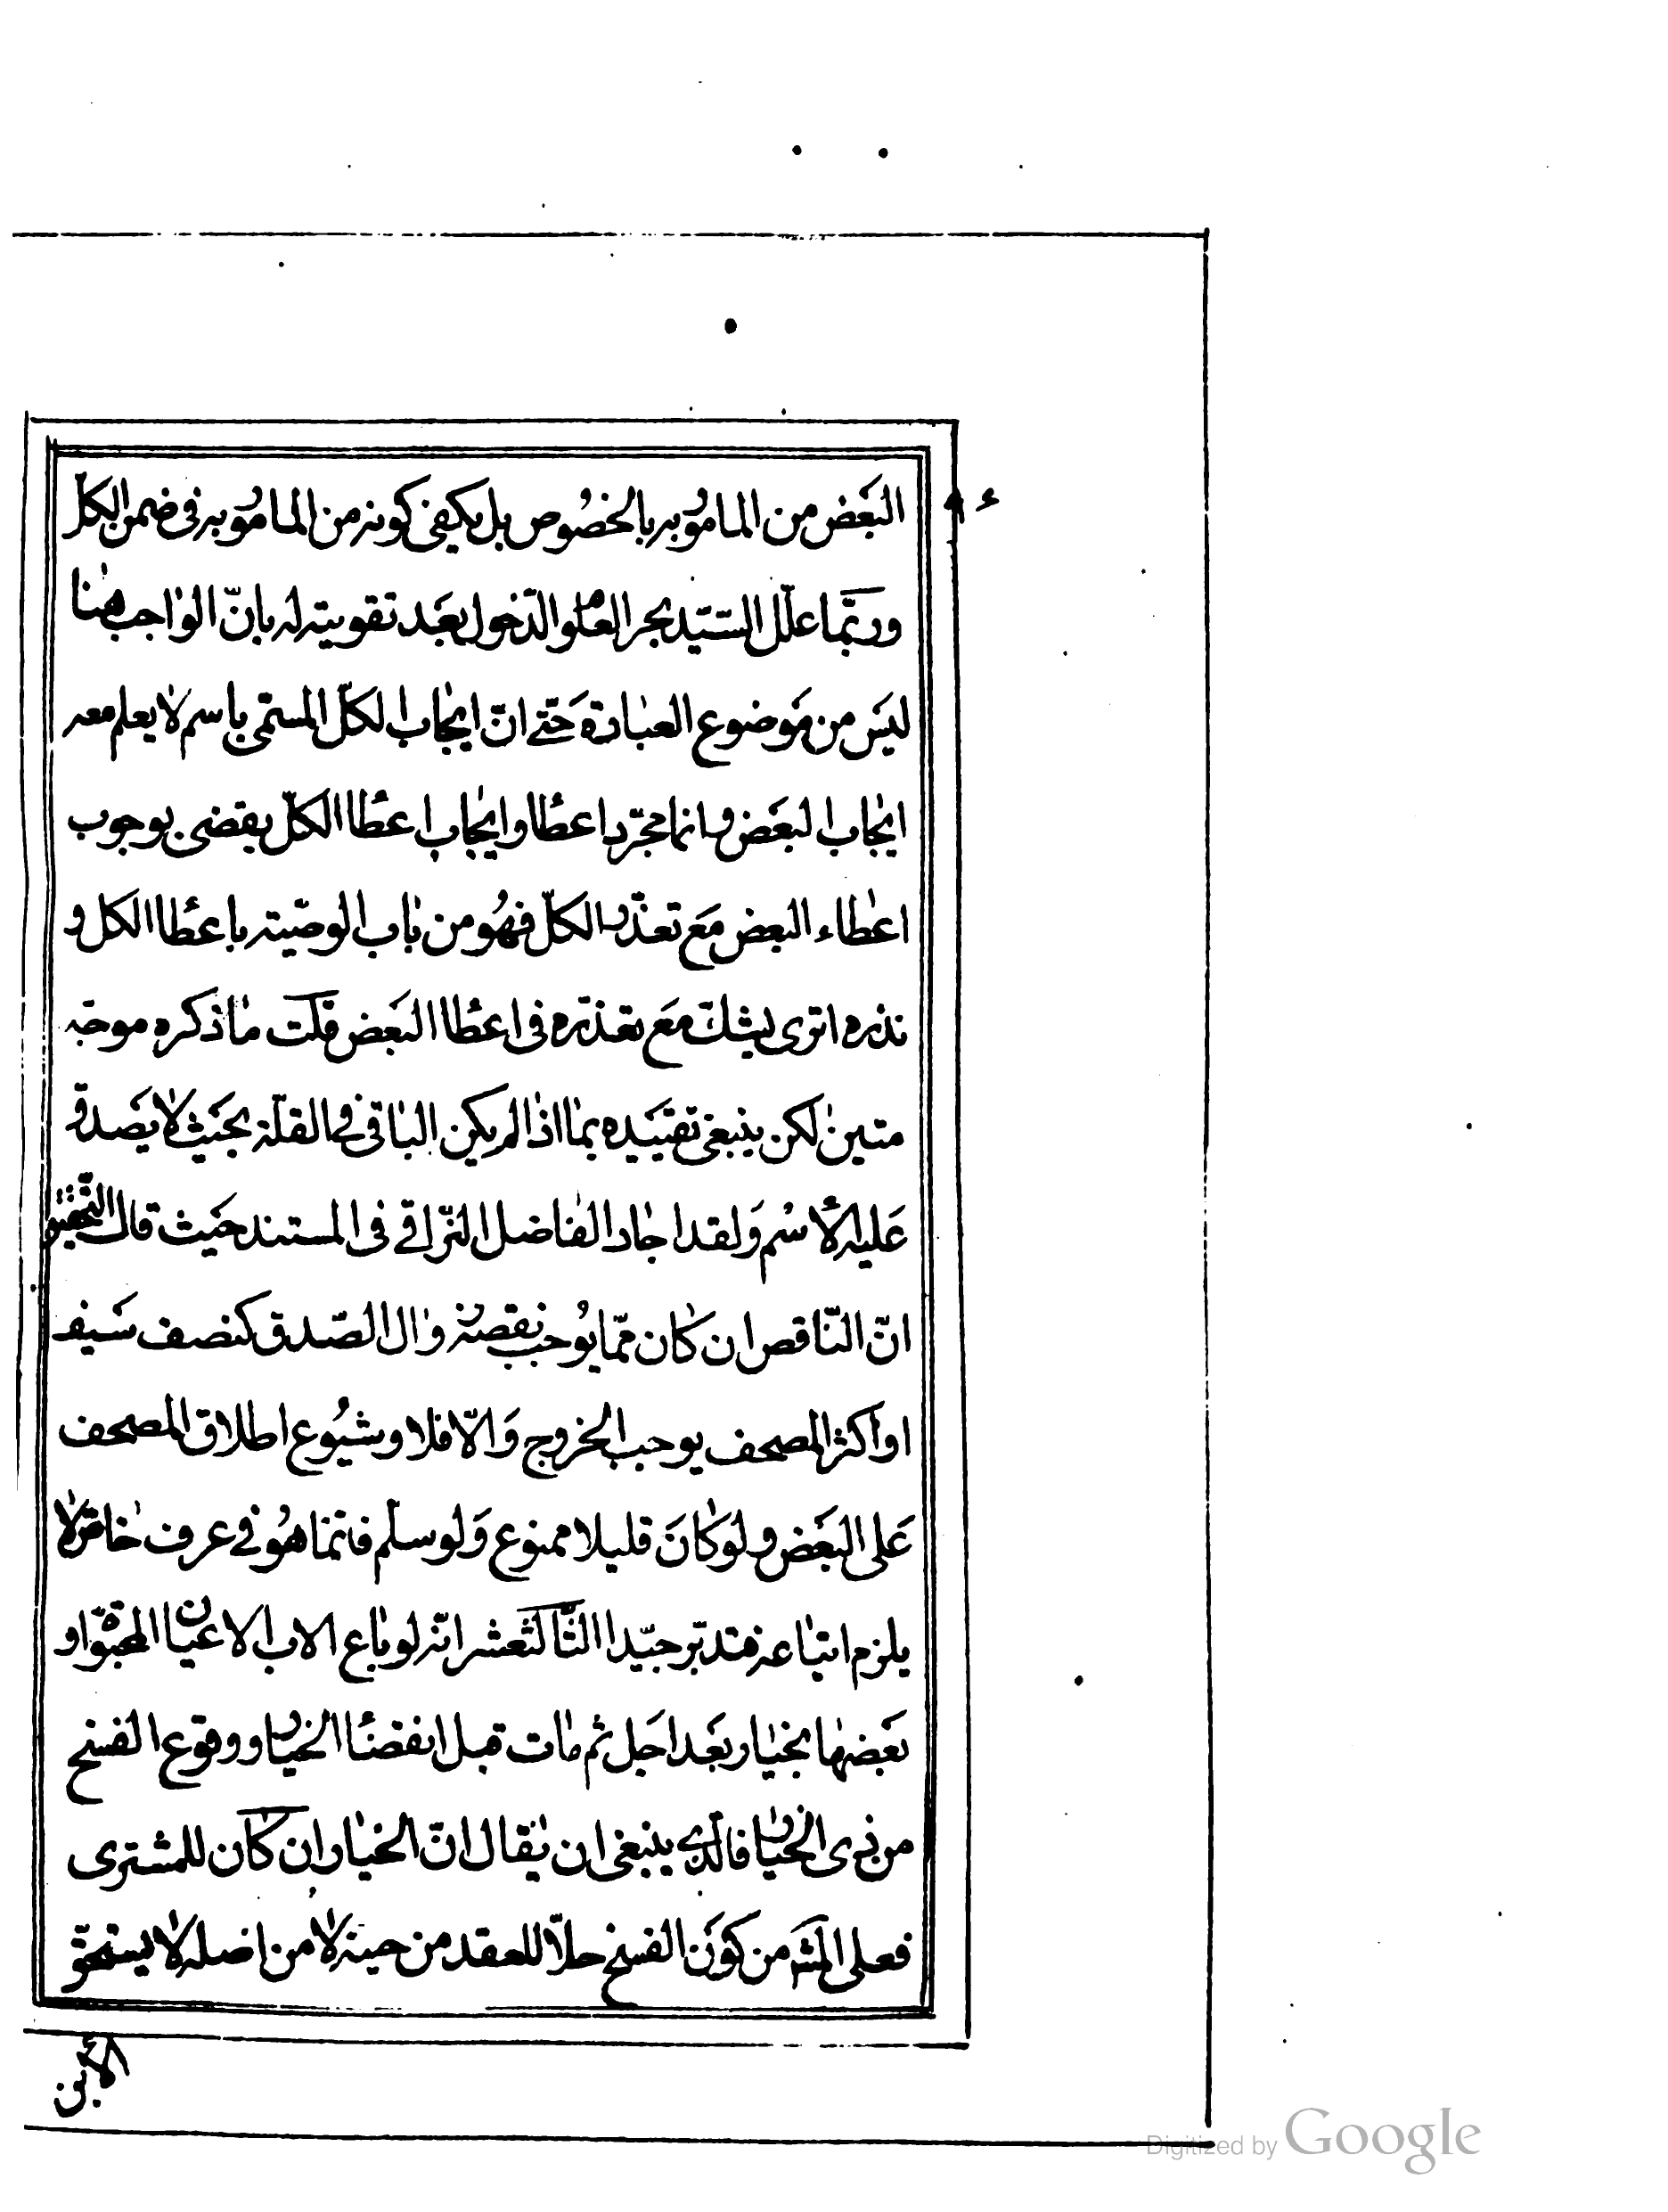 البَعَض من المامُوبه بالخصُوص بل يكفى كونه من المامُوبه فى ضمن الكلّ
وربّما علّل السّيّد بحر العلوم الدّخول بعَد تقويته له بانّ الواجب هنا
ليَس من مَوضوع العبادة حَتّے انّ ايجاب الكلّ المسمّى باسم لا يعلم معه
ايجاب البعَض وانما مجرّد اعطا وايجاب اعطا الكلّ يقضى بوجوب
اعطاء البعض مَع تعذّر الكلّ فهُو من باب الوصّية باعطا الكل و
نذره اترى يشك مَع تعذّره فى اعطا البَعض قلت ما ذكره موجّه
متين لكن ينبغى تقييَده بما اذا لم يكن الباقى فى القلّة بحَيث لا يَصدق
عَليه الأسم وَلقد اجاد الفاضل النّراقے فى المستند حَيث قال التّحقيق
انّ النّاقص ان كان ممّا يُوجب نقصه زوال الصّدق كنصف سَيف
او اكثر المصحف يوجب الخروج وَالّا فلا وشيُوع اطلاق المصحف
عَلى البَعَض ولوَ كانَ قليلا ممنوع وَلو سلّم فانمّا هُو فے عرف خاصّ لا
يلزم اتباعه فتدبّر جيّدا الثّالثَعشر انّه لو باع الاب الاعيان المحبوّة او
بَعَضها بخيار بعَد اجَل ثم مات قبل انقضا الخيار ووقوع الفسخ
من ذى الخيار فالّذى ينبغى ان يقال انّ الخيار ان كان للمشترى
فعلى المشه من كوَن الفسخ حلّا للعقد من حينه لا من اصله لا يستحقّ
الأبن
Digitized by Google